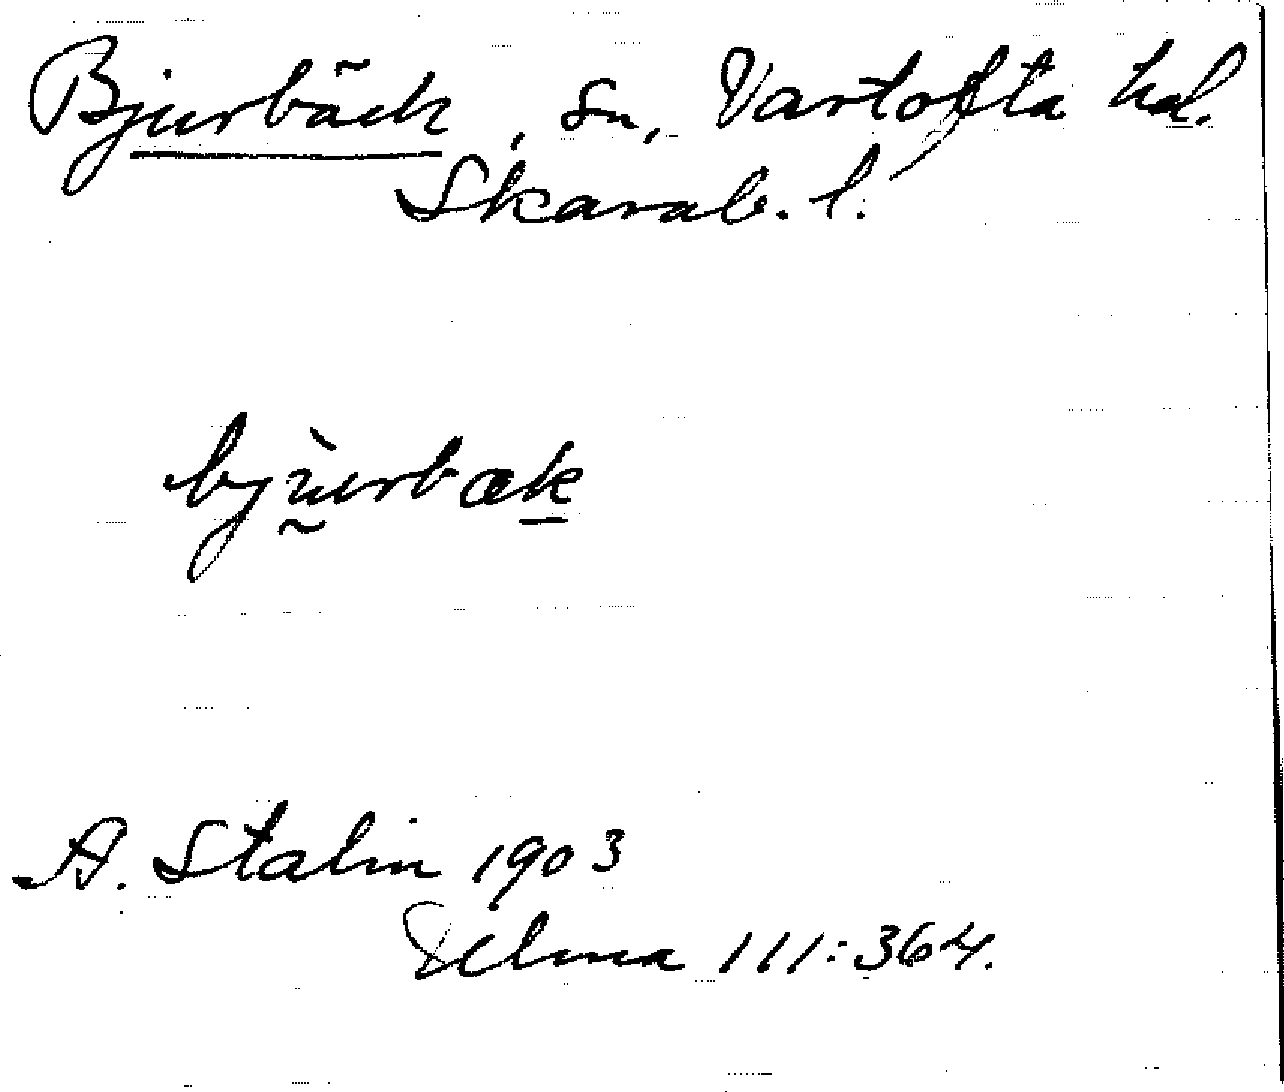 Bjurbäck, sn, Vartofta hd.
Skarab. l.
bjùrbæk
A. Stalin 1903
Ulma 111:364.